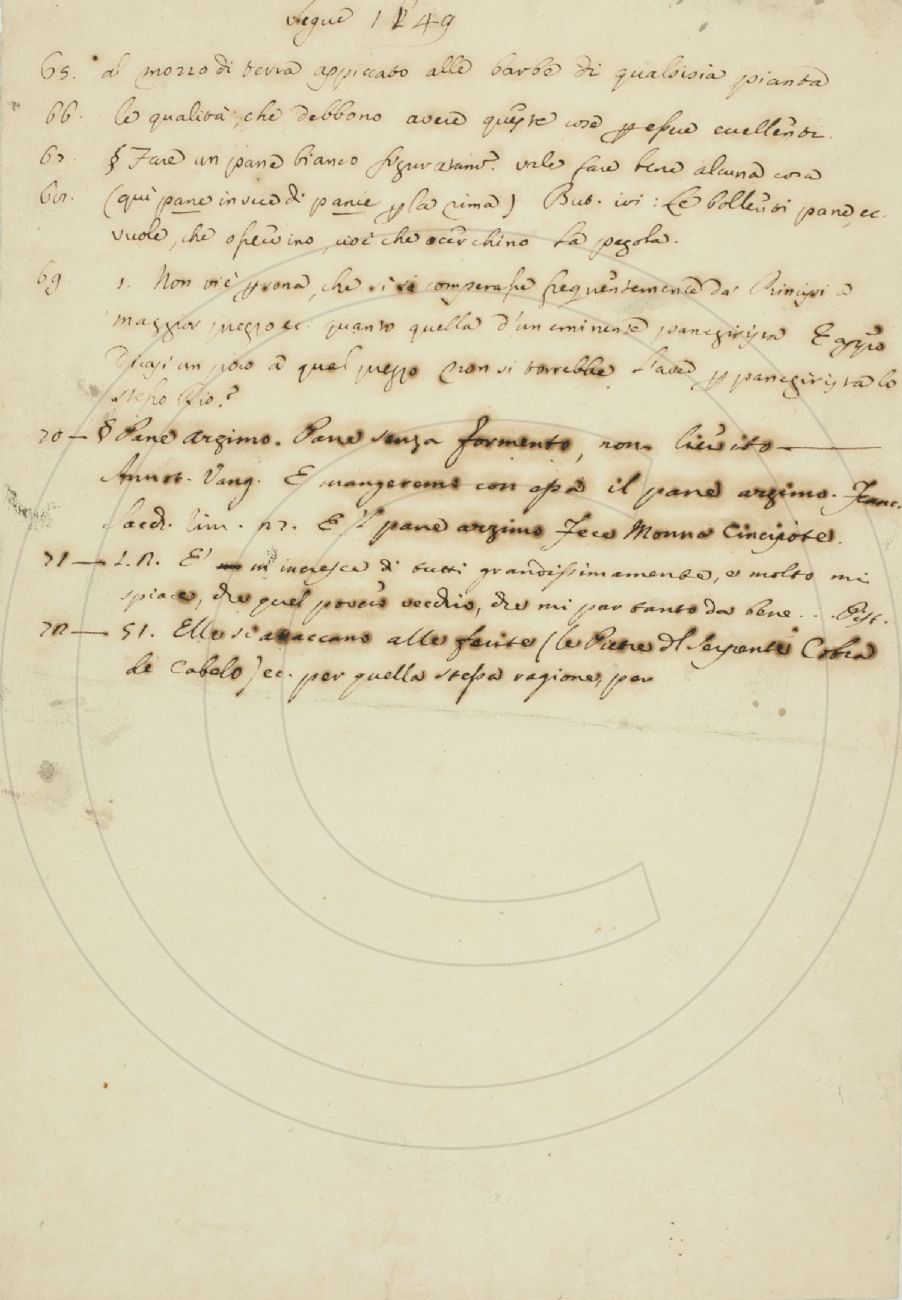 segue 1149
65. al mozzo di terra appiccato alle barbe di qualsisia pianta
66. le qualità, che debbono avere queste cose p essere eccellenti.
67. § Fare un pane bianco figuratam.e vale fare bene alcuna cosa
68. (qui pane in vece di panie p la rima) But. ivi: Le bollenti pane, ec.
vuole, che
69 1. Non vi è psona, che si comperasse frequentemente da' Principi a
maggior prezzo ec. quanto quella d'un eminente panegirista E appio
Dicasi un poco a quel prezzo non si torrebbe d'aver p panegirista lo
stesso Dio?
70 — § Pane azzimo. Pane senza formento, non lievito —
Annot. Vang. E mangeremo con essa il pane azzimo. Franc.
Sacch. rim. E 'l pane azzimo Fece Monna
71 — L. R. E' m' incresce di tutti grandissimamente, e molto mi
spiace, che quel povero vecchio, che mi par tanto da bene... Pist.
72 — 51. Elle si attaccano alle ferite (le Pietre dl Serpente Cobra
de Cabelo) ec. per quella stessa ragione, per